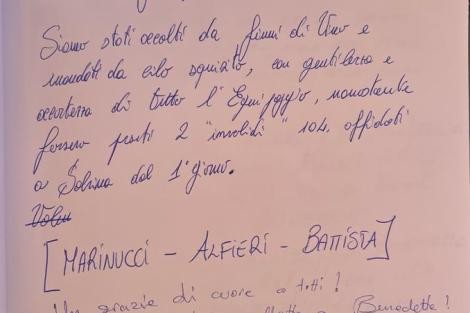 Siamo stati accolti da fiumi di Vino e
inondati da cibo squisito, con gentilezza e
accortezza di tutto l'Equipaggio, nonostante
fossero presenti 2 "invalidi" 104, affidati
a Sabrina dal 1° giorno.
[MARINUCCI - ALFIERI - BATTISTA]
Un grazie di cuore a tutti!
a Benedetta!